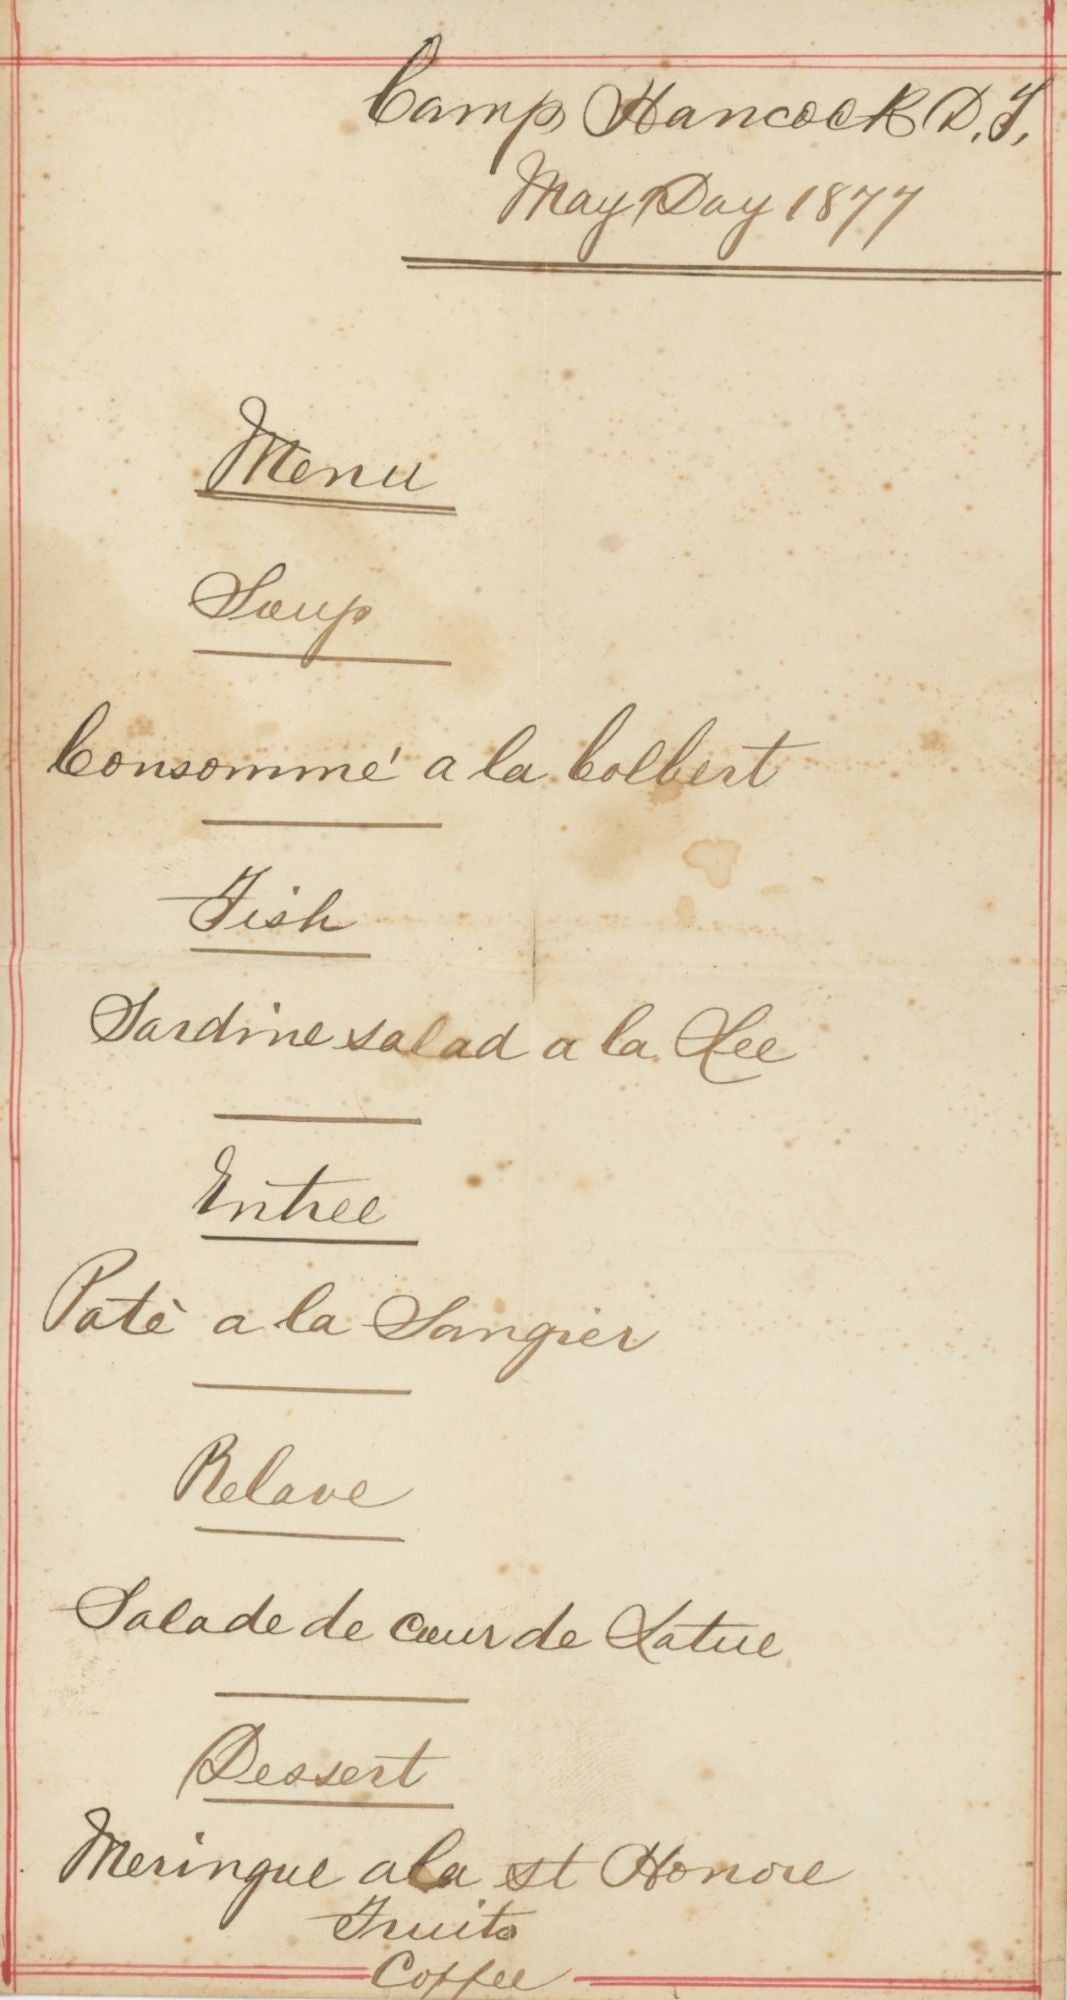 Camp Hancock D.T.
May Day 1877
Menu
Soup
Consommé a la Colbert
Fish
Sardine salad a la Lee
Entree
Patè a la Sangier
Relave
Salade de cœur de Latue
Dessert
Meringue a la st Honore
Fruits
Coffee